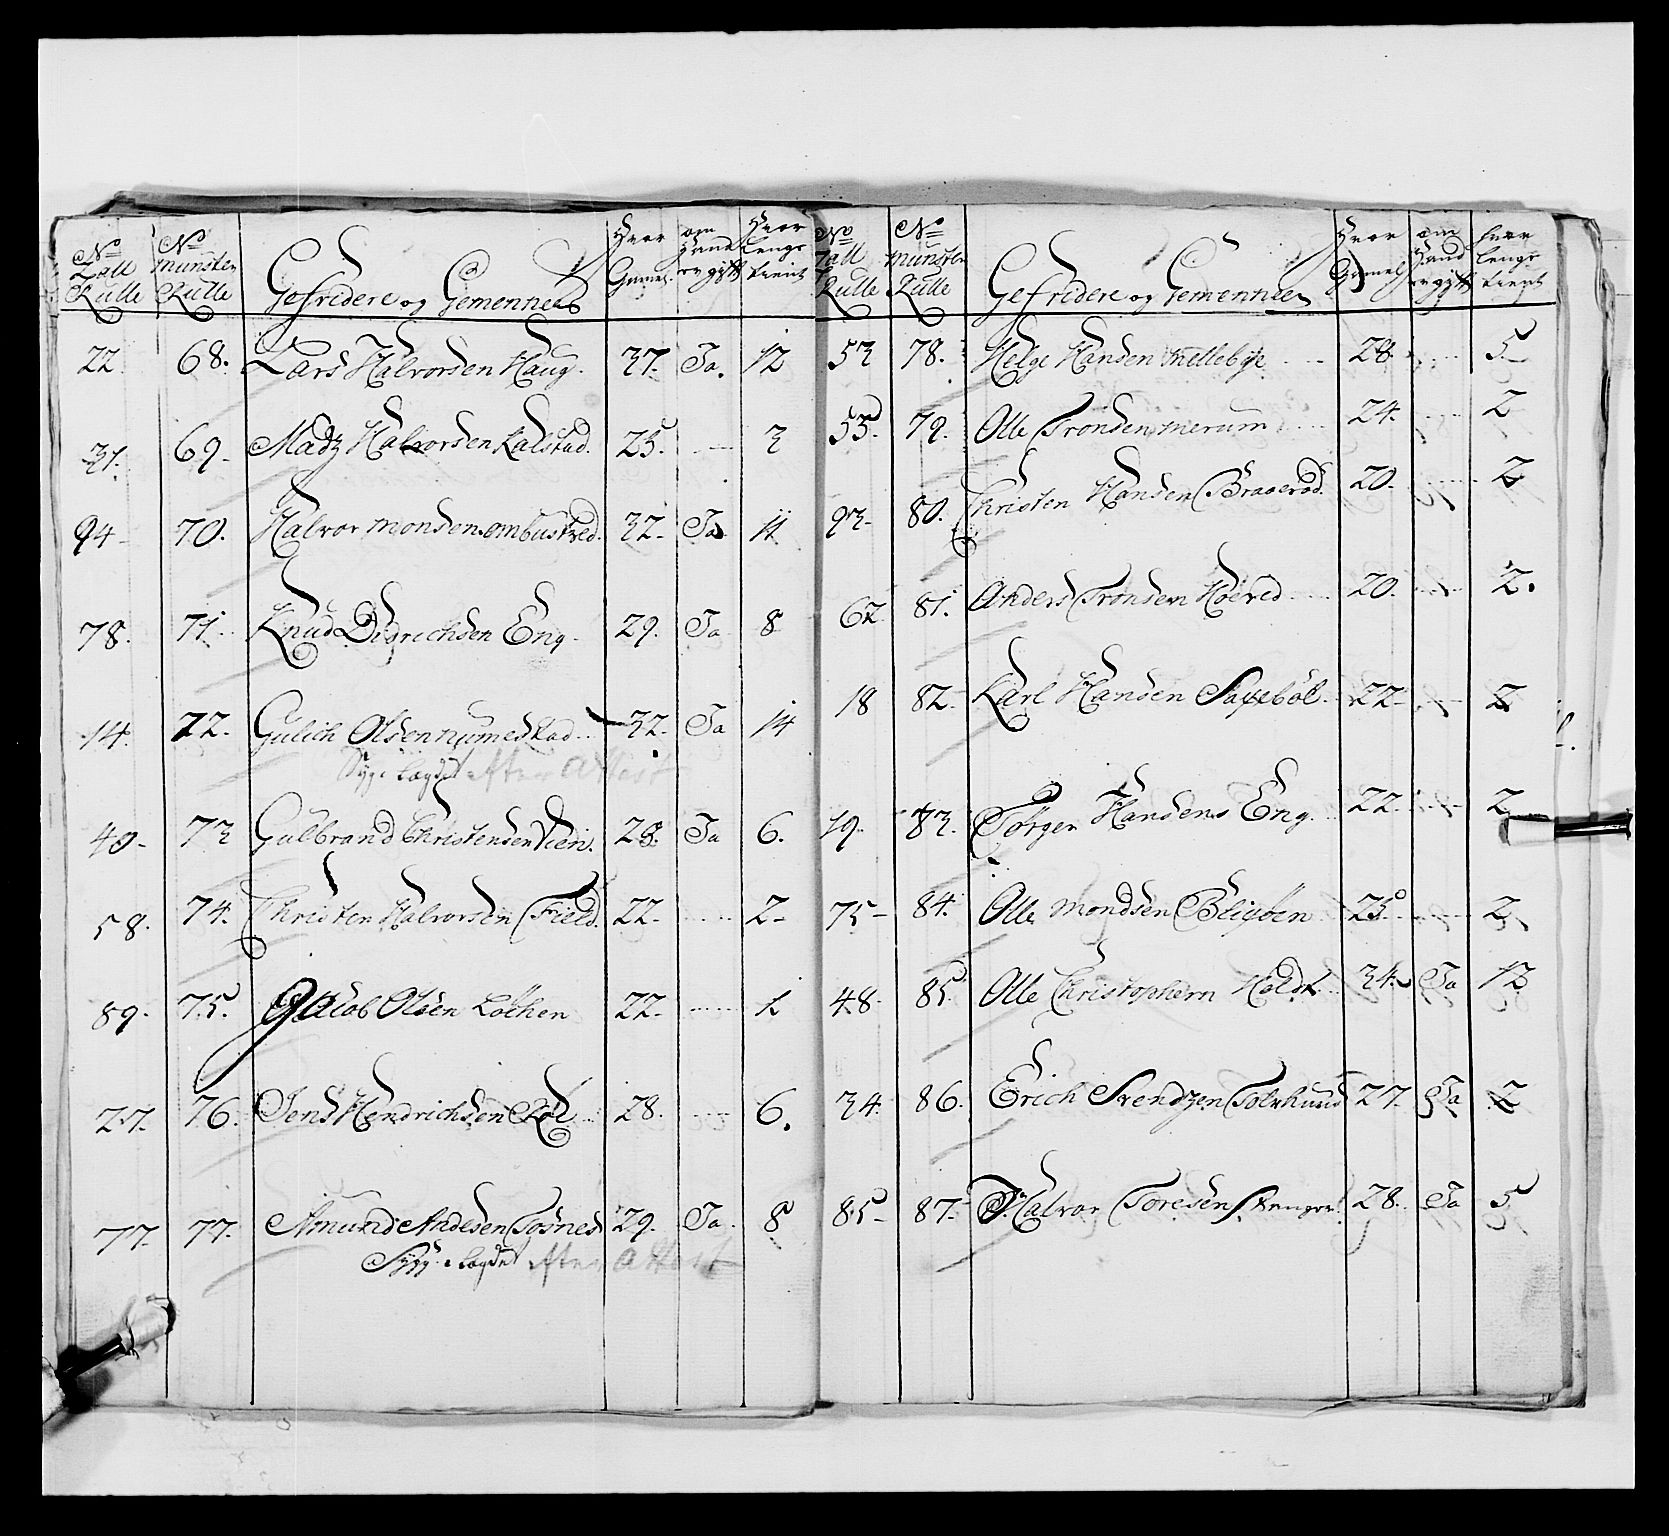 No Tall Rulle | No Munster Rulle | Gefridere og Gemenneer | Hvor Gamel | om Hand er gift | Hvor Lenge tient
22 | 68. | Lars Halvorsen Haug. | 37. | Ja. | 12
31. | 69. | Madz Halvorsen Kalstad. | 25. | | 3
94 | 70. | Halvor Monsen ombustved. | 32. | Ja | 11
78. | 71. | Knud Didrichsen Eng. | 29. | Ja | 8
14. | 72. | Gulich Olsen numestad | 32. | Ja | 14
Syg i Lagdet efter Attest
40. | 73 | Gulbrand Christensen Vien. | 28. | Ja | 6.
58. | 74. | Christen Halvorsen Field. | 22. | | 2
89. | 75. | Jacob Olsen Løchen | 22. | | 1
27. | 76. | Jens Hendrichsen Køl | 28. | | 6.
77. | 77. | Amund Andesen Fosnes | 29. | Ja. | 8
Syg i Lagdet efter Attest
No Tall Rulle | No Munster Rulle | Gefridere og Gemenneer | Hvor Gamel | om Hand er gift | hvor Lenge tient
53 | 78. | Helge Hansen Mellebye | 28 | | 5
55. | 79. | Olle Tronsen merum | 24. | | 2
93. | 80. | Christen Hansen Braaerød. | 20. | | 2
62 | 81. | Anders Tronsen Høeved | 20. | | 2.
18 | 82. | Karl Hansen Saxebøl. | 22. | | 2
19. | 83. | Jørgen Hansen Eng. | 22. | | 2
75 | 84. | Olle Mondsen Blixøen | 25 | | 2
48. | 85. | Olle Christophern Holdt | 34. | Ja | 12
34. | 86. | Erich Svendzen Solvhuus | 27. | Ja | 2
85 | 87. | Halvor Toresen | 28. | Ja | 5